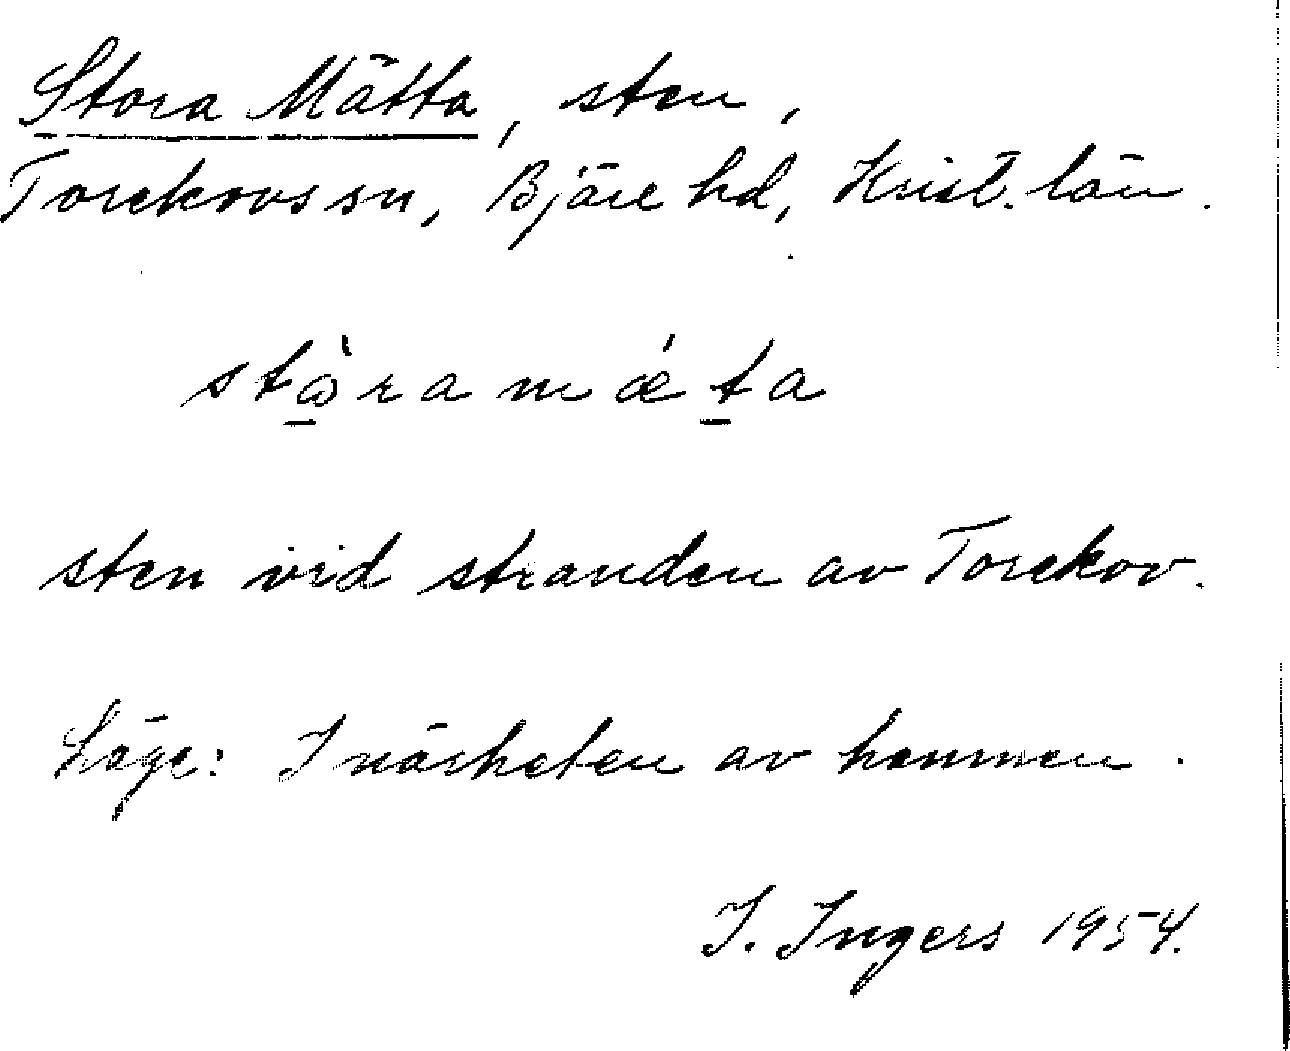 Stora Mätta, sten,
Torekovs sn, Bjäre hd, Krist. län.
stὼ̱ra mǽṯa
sten vid stranden av Torekov.
Läge: I närheten av hamnen.
I. Ingers 1954.